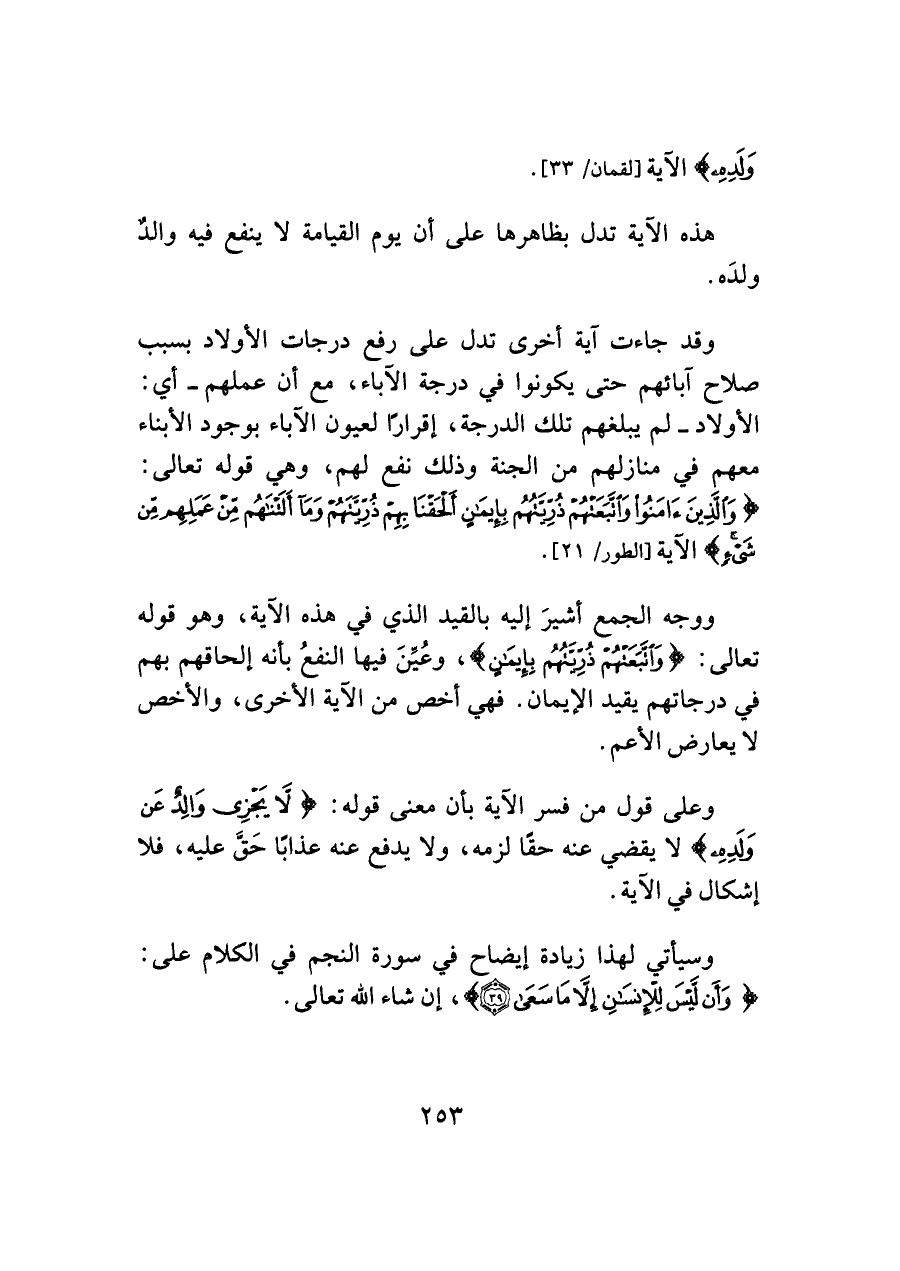 وَلَدِهِۦ﴾ الآية [لقمان/ ٣٣].
هذه الآية تدل بظاهرها على أن يوم القيامة لا ينفع فيه والدٌ
ولدَه.
وقد جاءت آية أخرى تدل على رفع درجات الأولاد بسبب
صلاح آبائهم حتى يكونوا في درجة الآباء، مع أن عملهم ـ أي:
الأولاد ـ لم يبلغهم تلك الدرجة، إقرارًا لعيون الآباء بوجود الأبناء
معهم في منازلهم من الجنة وذلك نفع لهم، وهي قوله تعالى:
﴿ وَٱلَّذِينَ ءَامَنُوا۟ وَٱتَّبَعَتْهُمْ ذُرِّيَّتُهُم بِإِيمَٰنٍ أَلْحَقْنَا بِهِمْ ذُرِّيَّتَهُمْ وَمَآ أَلَتْنَٰهُم مِّنْ عَمَلِهِم مِّن
شَىْءٍۚ﴾ الآية [الطور/ ٢١].
ووجه الجمع أشيرَ إليه بالقيد الذي في هذه الآية، وهو قوله
تعالى: ﴿ وَٱتَّبَعَتْهُمْ ذُرِّيَّتُهُم بِإِيمَٰنٍ﴾، وعُيِّنَ فيها النفعُ بأنه إلحاقهم بهم
في درجاتهم يقيد الإيمان. فهي أخص من الآية الأخرى، والأخص
لا يعارض الأعم.
وعلى قول من فسر الآية بأن معنى قوله: ﴿ لَّا يَجْزِى وَالِدٌ عَن
وَلَدِهِۦ﴾ لا يقضي عنه حقًا لزمه، ولا يدفع عنه عذابًا حَقَّ عليه، فلا
إشكال في الآية.
وسيأتي لهذا زيادة إيضاح في سورة النجم في الكلام على:
﴿ وَأَن لَّيْسَ لِلْإِنسَٰنِ إِلَّا مَا سَعَىٰ ٣٩﴾، إن شاء الله تعالى.
٢٥٣